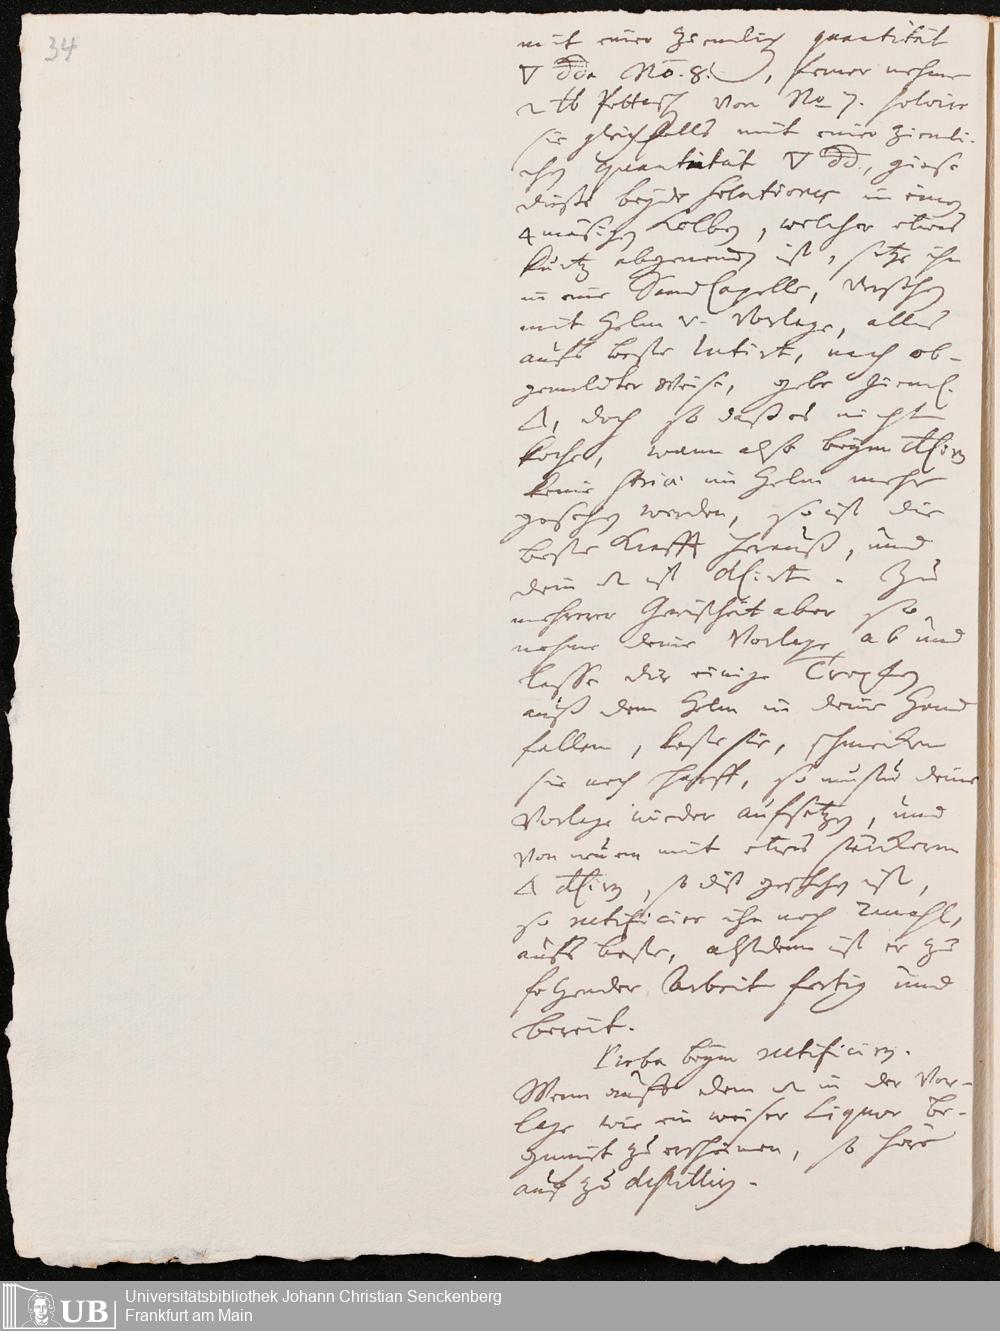 34
mit einer ziemlich quantität
▽ No. 8. , ferner nehme
2 ℔ Pottasch von No 7. solvire
sie gleichfalls mit einer ziemli-
chen quantität ▽ , giese
diese beyde solutiones in einen
4 mäsigen Kolben, welcher etwas
kurtz ist, setze ihn
in eine Sand Capelle,
mit Helm u. Vorlage, alles
aufs beste lutirt, nach ob-
gemelter Weise, gebe ziemlich
△, doch so daß es nicht
koche, wann also beym
keine striae im Helm mehr
gesehen werden, so ist die
beste Krafft herauß, und
dein ist . Zu
mehrerer Gewißheit aber so
nehme deine Vorlage ab und
lasse dir einige Tropfen
auß dem Helm in deine Hand
fallen, koste sie, schmecken
sie noch scharff, so mustu deine
Vorlage wieder aufsetzen, und
von neuem mit etwas stärkerm
△ , so diß geschehen ist,
so rectificire ihn noch 2mahl,
aufs beste, alsdann ist er zu
folgender Arbeit fertig und
bereit.
beym rectificiren.
Wenn auff dem in der Vor-
lage wie ein weiser Liquor be-
ginnet zu erscheinen, so höre
auf zu destilliren.
UB
Universitätsbibliothek Johann Christian Senckenberg
Frankfurt am Main